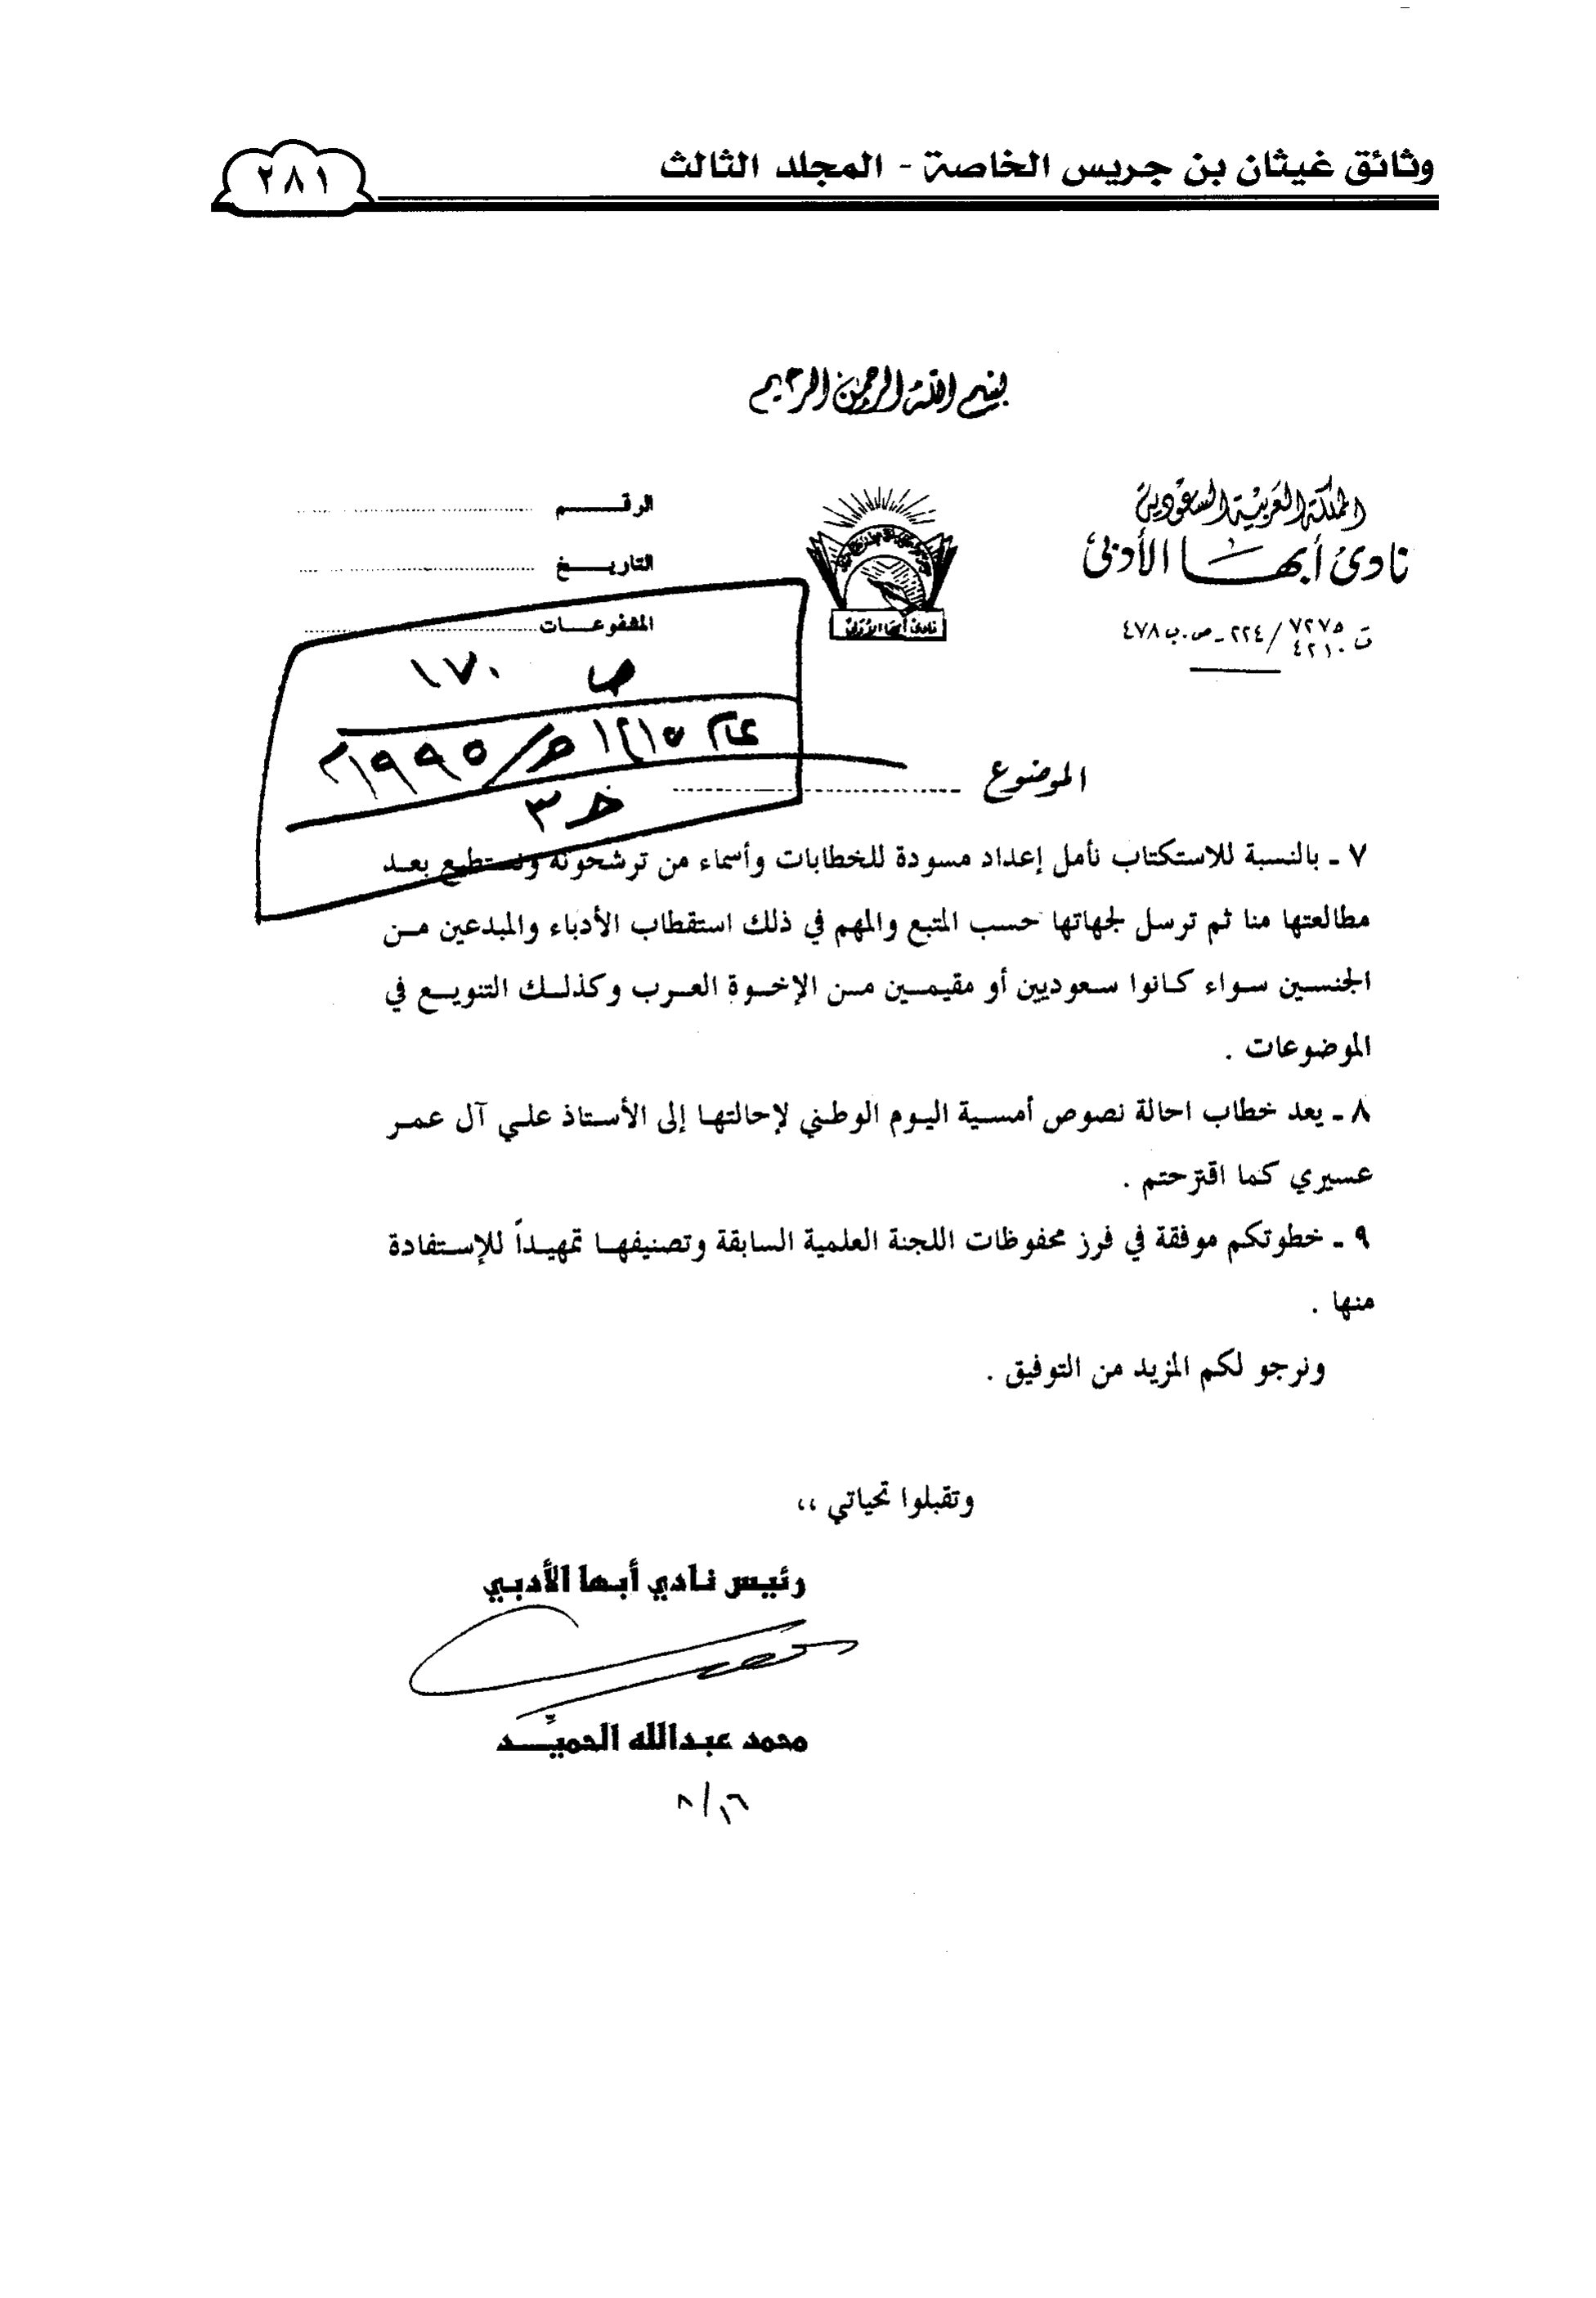 وثائق غيثان بن جريس الخاصة - المجلد الثالث
٢٨١
بسم الله الرحمن الرحيم
المملكة العربية السعودية
نادي أبها الأدبي
ت ٧٢٧٥ / ٤٢١٠ / ٢٢٤ ـ ص.ب ٤٧٨
نادي أبها الأدبي
الرقـــــــم
التاريــــخ
المشفوعــات
ص ١٧٠
عام ١٤١٥هـ/١٩٩٥م
خـ ٣
الموضوع
٧ ـ بالنسبة للاستكتاب نأمل إعداد مسودة للخطابات وأسماء من ترشحونه ونستطيع بعد
مطالعتها منا ثم ترسل لجهاتها حسب المتبع والمهم في ذلك استقطاب الأدباء والمبدعين من
الجنسين سواء كانوا سعوديين أو مقيمين من الإخوة العرب وكذلك التنويع في
الموضوعات .
٨ ـ يعد خطاب احالة نصوص أمسية اليوم الوطني لإحالتها إلى الأستاذ علي آل عمر
عسيري كما اقترحتم .
٩ ـ خطوتكم موفقة في فرز محفوظات اللجنة العلمية السابقة وتصنيفها تمهيداً للإستفادة
منها .
ونرجو لكم المزيد من التوفيق .
وتقبلوا تحياتي ،،
رئيس نادي أبها الأدبي
محمد عبدالله الحميّد
٨/١٦